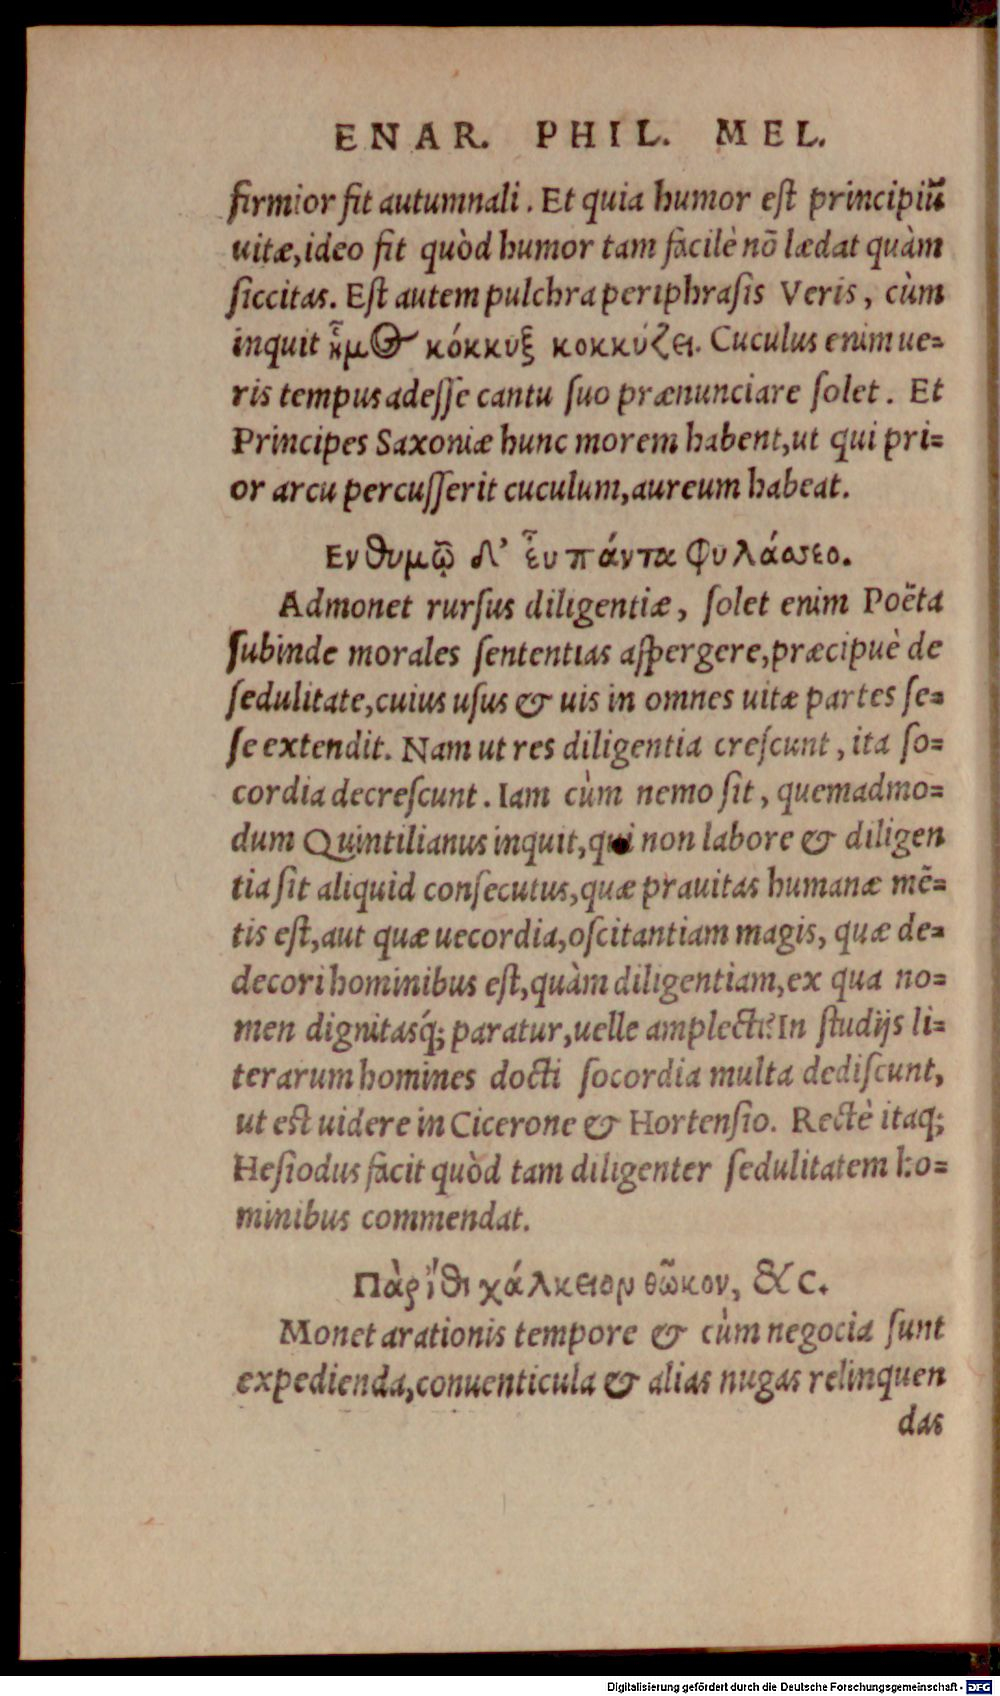 ENAR. PHIL. MEL.
firmior fit autumnali. Et quia humor est principiũ
uitæ, ideo fit quòd humor tam facilè nõ lædat quàm
siccitas. Est autem pulchra periphrasis Veris, cùm
inquit ἦμος κόκκυξ κοκκύζει. Cuculus enim ue=
ris tempus adesse cantu suo prænunciare solet. Et
Principes Saxoniæ hunc morem habent, ut qui pri=
or arcu percusserit cuculum, aureum habeat.
Εν θυμῷ δ’ εὖ πάντα φυλάσσεο.
Admonet rursus diligentiæ, solet enim Poëta
subinde morales sententias aspergere, præcipuè de
sedulitate, cuius usus & uis in omnes uitæ partes se=
se extendit. Nam ut res diligentia crescunt, ita so=
cordia decrescunt. Iam cùm nemo sit, quemadmo=
dum Quintilianus inquit, qui non labore & diligen
tia sit aliquid consecutus, quæ prauitas humanæ mẽ=
tis est, aut quæ uecordia, oscitantiam magis, quæ de=
decori hominibus est, quàm diligentiam, ex qua no=
men dignitasq́; paratur, uelle amplecti? In studijs li=
terarum homines docti socordia multa dediscunt,
ut est uidere in Cicerone & Hortensio. Rectè itaq;
Hesiodus facit quòd tam diligenter sedulitatem ho=
minibus commendat.
Πὰρ ἴθι χάλκειον θῶκον, &c.
Monet arationis tempore & cùm negocia sunt
expedienda, conuenticula & alias nugas relinquen
das
Digitalisierung gefördert durch die Deutsche Forschungsgemeinschaft - DFG